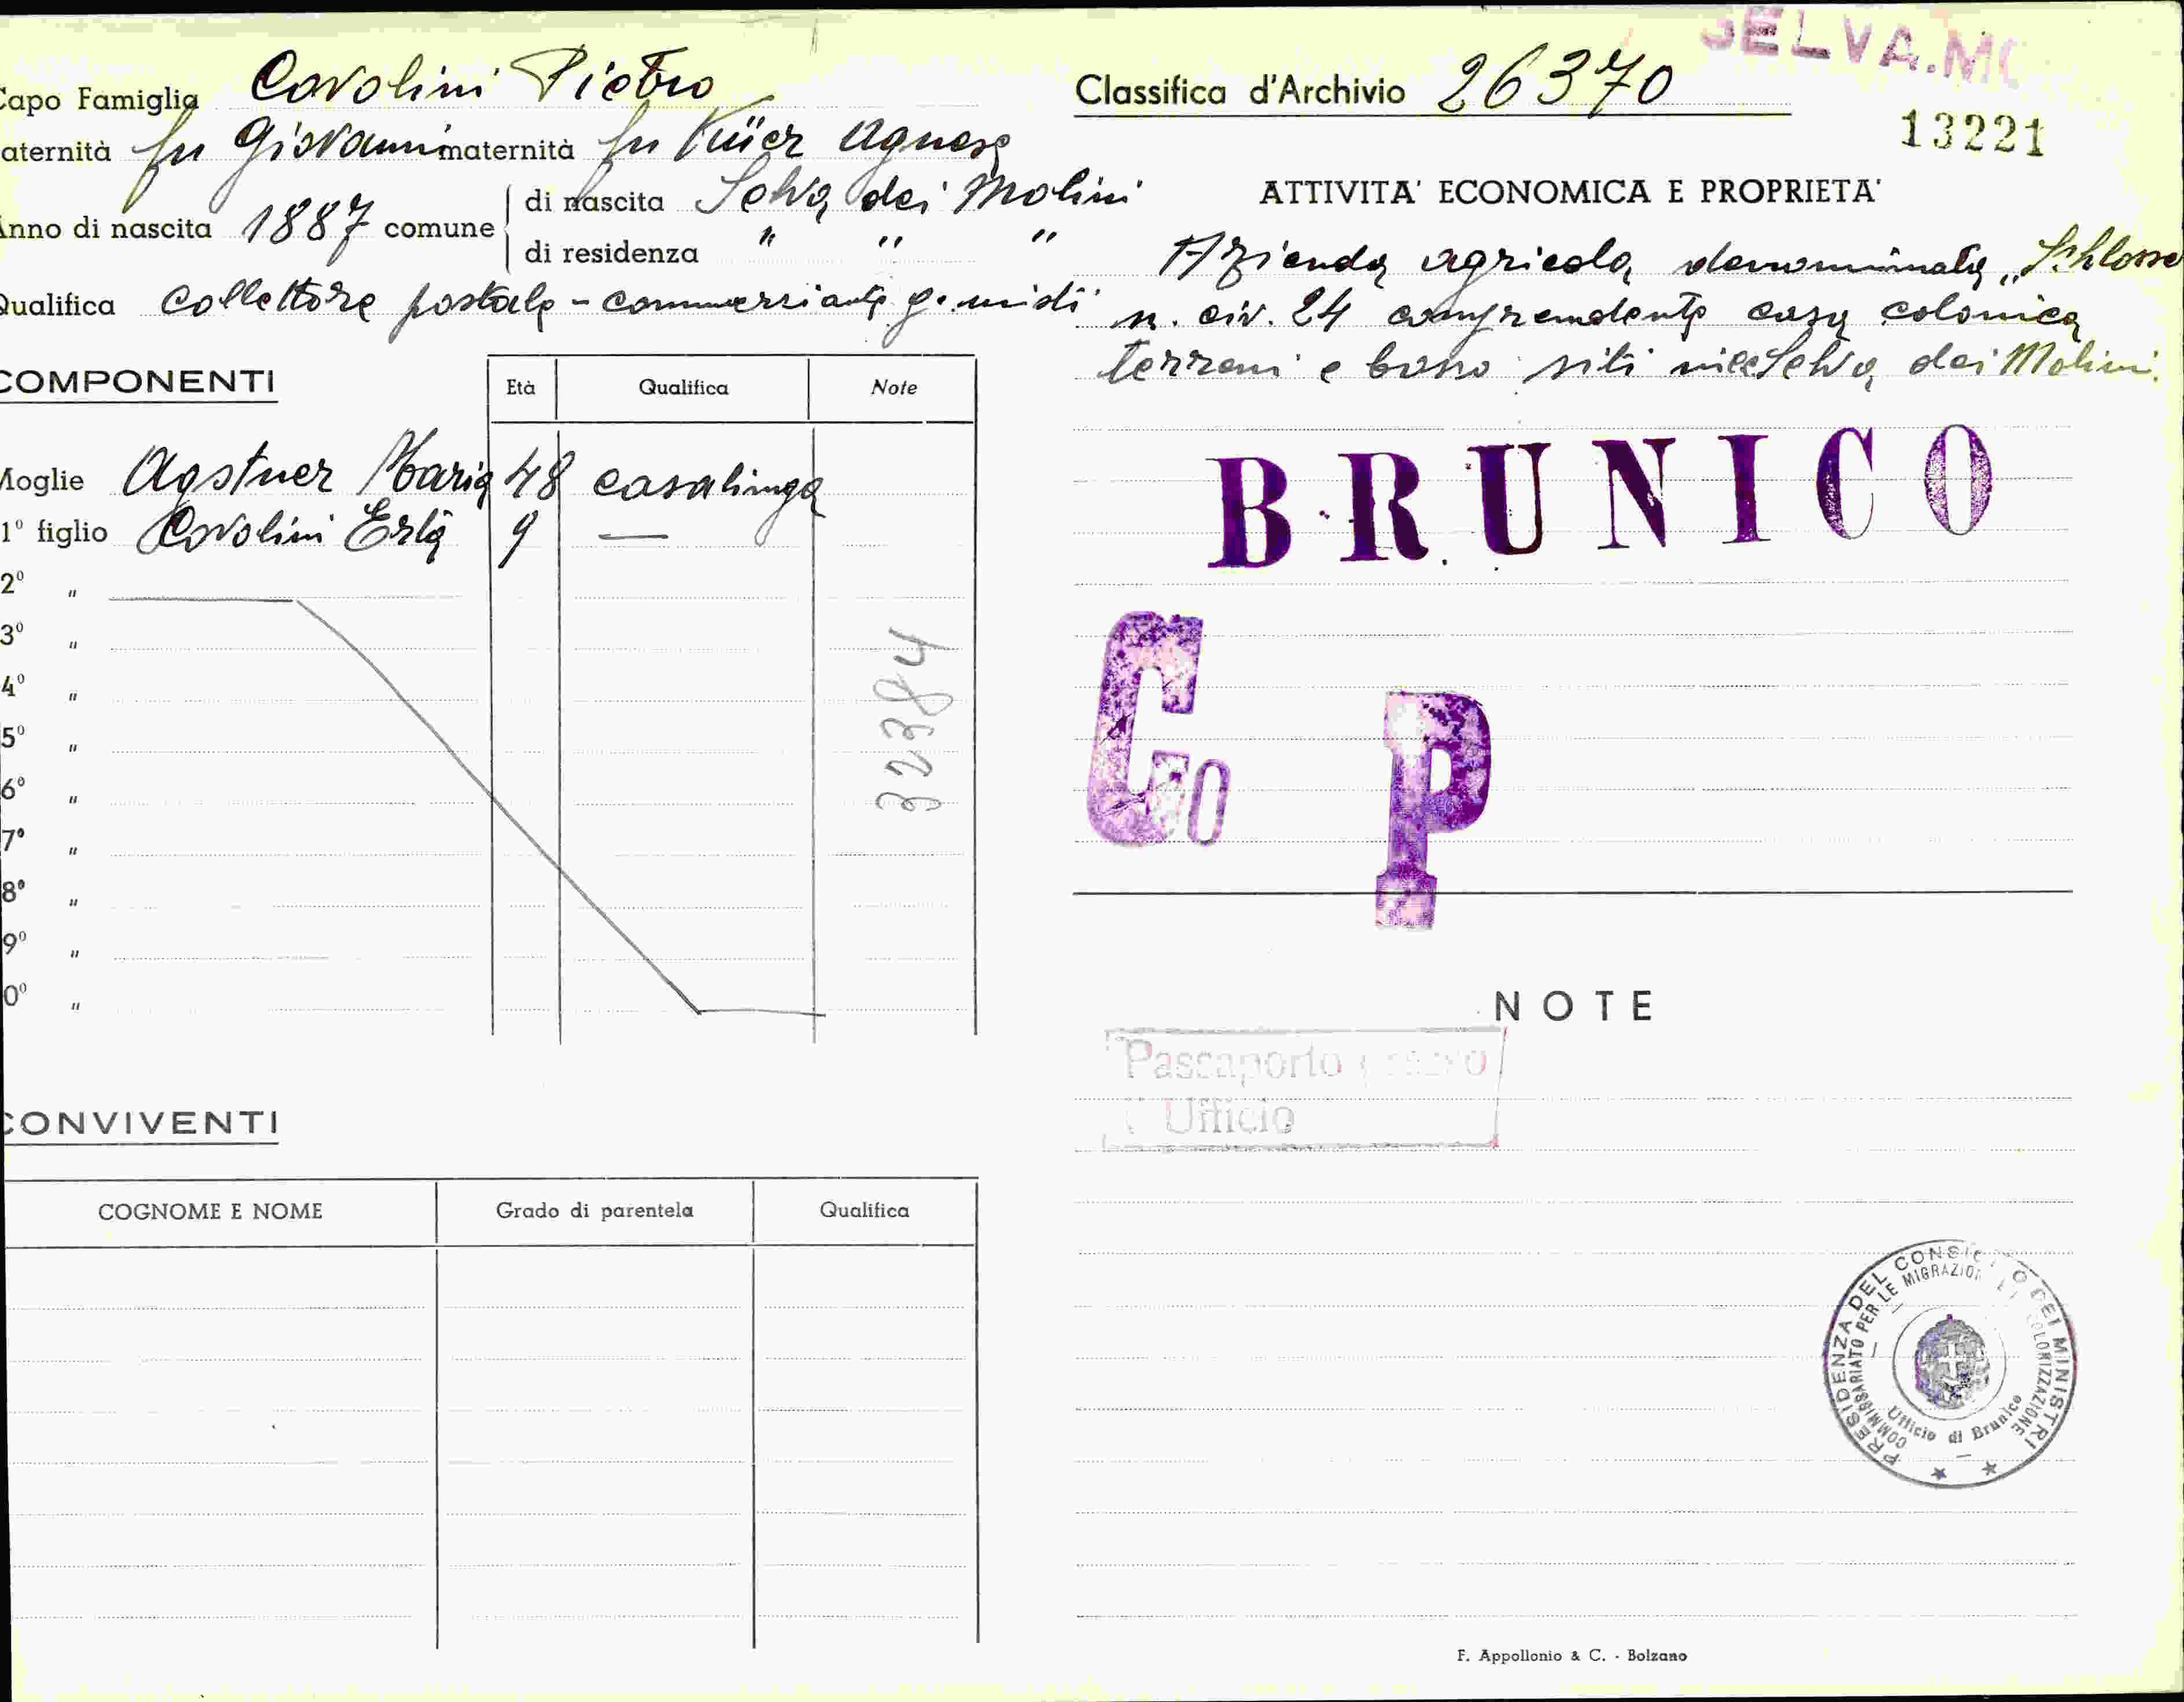 SELVA.M
Capo Famiglia Covolini Pietro
aternità fu Giovanni maternità fu Küer Agnese
Anno di nascita 1887 comune
di nascita Selva dei Molini
di residenza " " "
Qualifica collettore postale - commerciante g. misti
COMPONENTI
Età Qualifica Note
Moglie Agstner Maria 48 casalinga
1º figlio Covolini Erta 9 —
2º "
3º "
4º "
5º "
6º "
7º "
8º "
9º "
0º "
32384
CONVIVENTI
COGNOME E NOME Grado di parentela Qualifica
Classifica d'Archivio 26370
13221
ATTIVITA' ECONOMICA E PROPRIETA'
Azienda agricola denominata „Schlosse
n. civ. 24 comprendente casa colonica
terreni e bosco siti in Selva dei Molini.
BRUNICO
C O
P
NOTE
Passaporto
Ufficio
PRESIDENZA DEL CONSIGLIO DEI MINISTRI
COMMISSARIATO PER LE MIGRAZIONI E COLONIZZAZIONE
Ufficio di Brunico
F. Appollonio & C. - Bolzano